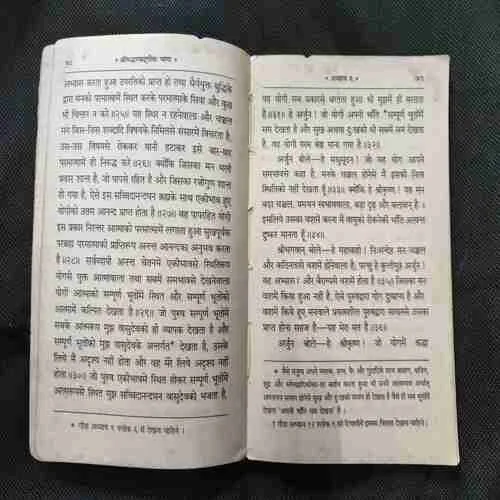 ७८ * श्रीमद्भगवद्गीता भाषा *
अभ्यास करता हुआ उपरतिको प्राप्त हो तथा धैर्ययुक्त बुद्धिके
द्वारा मनको परमात्मामें स्थित करके परमात्माके सिवा और कुछ
भी चिन्तन न करे ॥२५॥ यह स्थिर न रहनेवाला और चञ्चल
मन जिस-जिस शब्दादि विषयके निमित्तसे संसारमें विचरता है,
उस-उस विषयसे रोककर यानी हटाकर इसे बार-बार
परमात्मामें ही निरुद्ध करे ॥२६॥ क्योंकि जिसका मन भली
प्रकार शान्त है, जो पापसे रहित है और जिसका रजोगुण शान्त
हो गया है, ऐसे इस सच्चिदानन्दघन ब्रह्मके साथ एकीभाव हुए
योगीको उत्तम आनन्द प्राप्त होता है ॥२७॥ वह पापरहित योगी
इस प्रकार निरन्तर आत्माको परमात्मामें लगाता हुआ सुखपूर्वक
परब्रह्म परमात्माकी प्राप्तिरूप अनन्त आनन्दका अनुभव करता
है ॥२८॥ सर्वव्यापी अनन्त चेतनमें एकीभावसे स्थितिरूप
योगसे युक्त आत्मावाला तथा सबमें समभावसे देखनेवाला
योगी आत्माको सम्पूर्ण भूतोंमें स्थित और सम्पूर्ण भूतोंको
आत्मामें कल्पित देखता है ॥२९॥ जो पुरुष सम्पूर्ण भूतोंमें
सबके आत्मरूप मुझ वासुदेवको ही व्यापक देखता है और
सम्पूर्ण भूतोंको मुझ वासुदेवके अन्तर्गत* देखता है, उसके
लिये मैं अदृश्य नहीं होता और वह मेरे लिये अदृश्य नहीं
होता ॥३०॥ जो पुरुष एकीभावमें स्थित होकर सम्पूर्ण भूतोंमें
आत्मरूपसे स्थित मुझ सच्चिदानन्दघन वासुदेवको भजता है,
* गीता अध्याय ९ श्लोक ६ में देखना चाहिये ।
* अध्याय ६ * ७९
वह योगी सब प्रकारसे बरतता हुआ भी मुझमें ही बरतता
है ॥३१॥ हे अर्जुन ! जो योगी अपनी भाँति *सम्पूर्ण भूतोंमें
सम देखता है और सुख अथवा दुःखको भी सबमें सम देखता
है, वह योगी परम श्रेष्ठ माना गया है ॥३२॥
अर्जुन बोले—हे मधुसूदन ! जो यह योग आपने
समभावसे कहा है, मनके चञ्चल होनेसे मैं इसकी नित्य
स्थितिको नहीं देखता हूँ ॥३३॥ क्योंकि हे श्रीकृष्ण ! यह मन
बड़ा चञ्चल, प्रमथन स्वभाववाला, बड़ा दृढ़ और बलवान् है ।
इसलिये उसका वशमें करना मैं वायुको रोकनेकी भाँति अत्यन्त
दुष्कर मानता हूँ ॥३४॥
श्रीभगवान् बोले—हे महाबाहो ! निःसन्देह मन चञ्चल
और कठिनतासे वशमें होनेवाला है; परन्तु हे कुन्तीपुत्र अर्जुन !
यह अभ्यास† और वैराग्यसे वशमें होता है ॥३५॥ जिसका मन
वशमें किया हुआ नहीं है, ऐसे पुरुषद्वारा योग दुष्प्राप्य है और
वशमें किये हुए मनवाले प्रयत्नशील पुरुषद्वारा साधनसे उसका
प्राप्त होना सहज है—यह मेरा मत है ॥३६॥
अर्जुन बोले—हे श्रीकृष्ण ! जो योगमें श्रद्धा
* जैसे मनुष्य अपने मस्तक, हाथ, पैर और गुदादिके साथ ब्राह्मण, क्षत्रिय,
शूद्र और म्लेच्छादिकोंका-सा बर्ताव करता हुआ भी उनमें आत्मभाव अर्थात्
अपनापन समान होनेसे सुख और दुःखको समान ही देखता है वैसे ही सब भूतोंमें
देखना 'अपनी भाँति सम देखना' है ।
† गीता अध्याय १२ श्लोक ९ की टिप्पणीमें इसका विस्तार देखना चाहिये ।